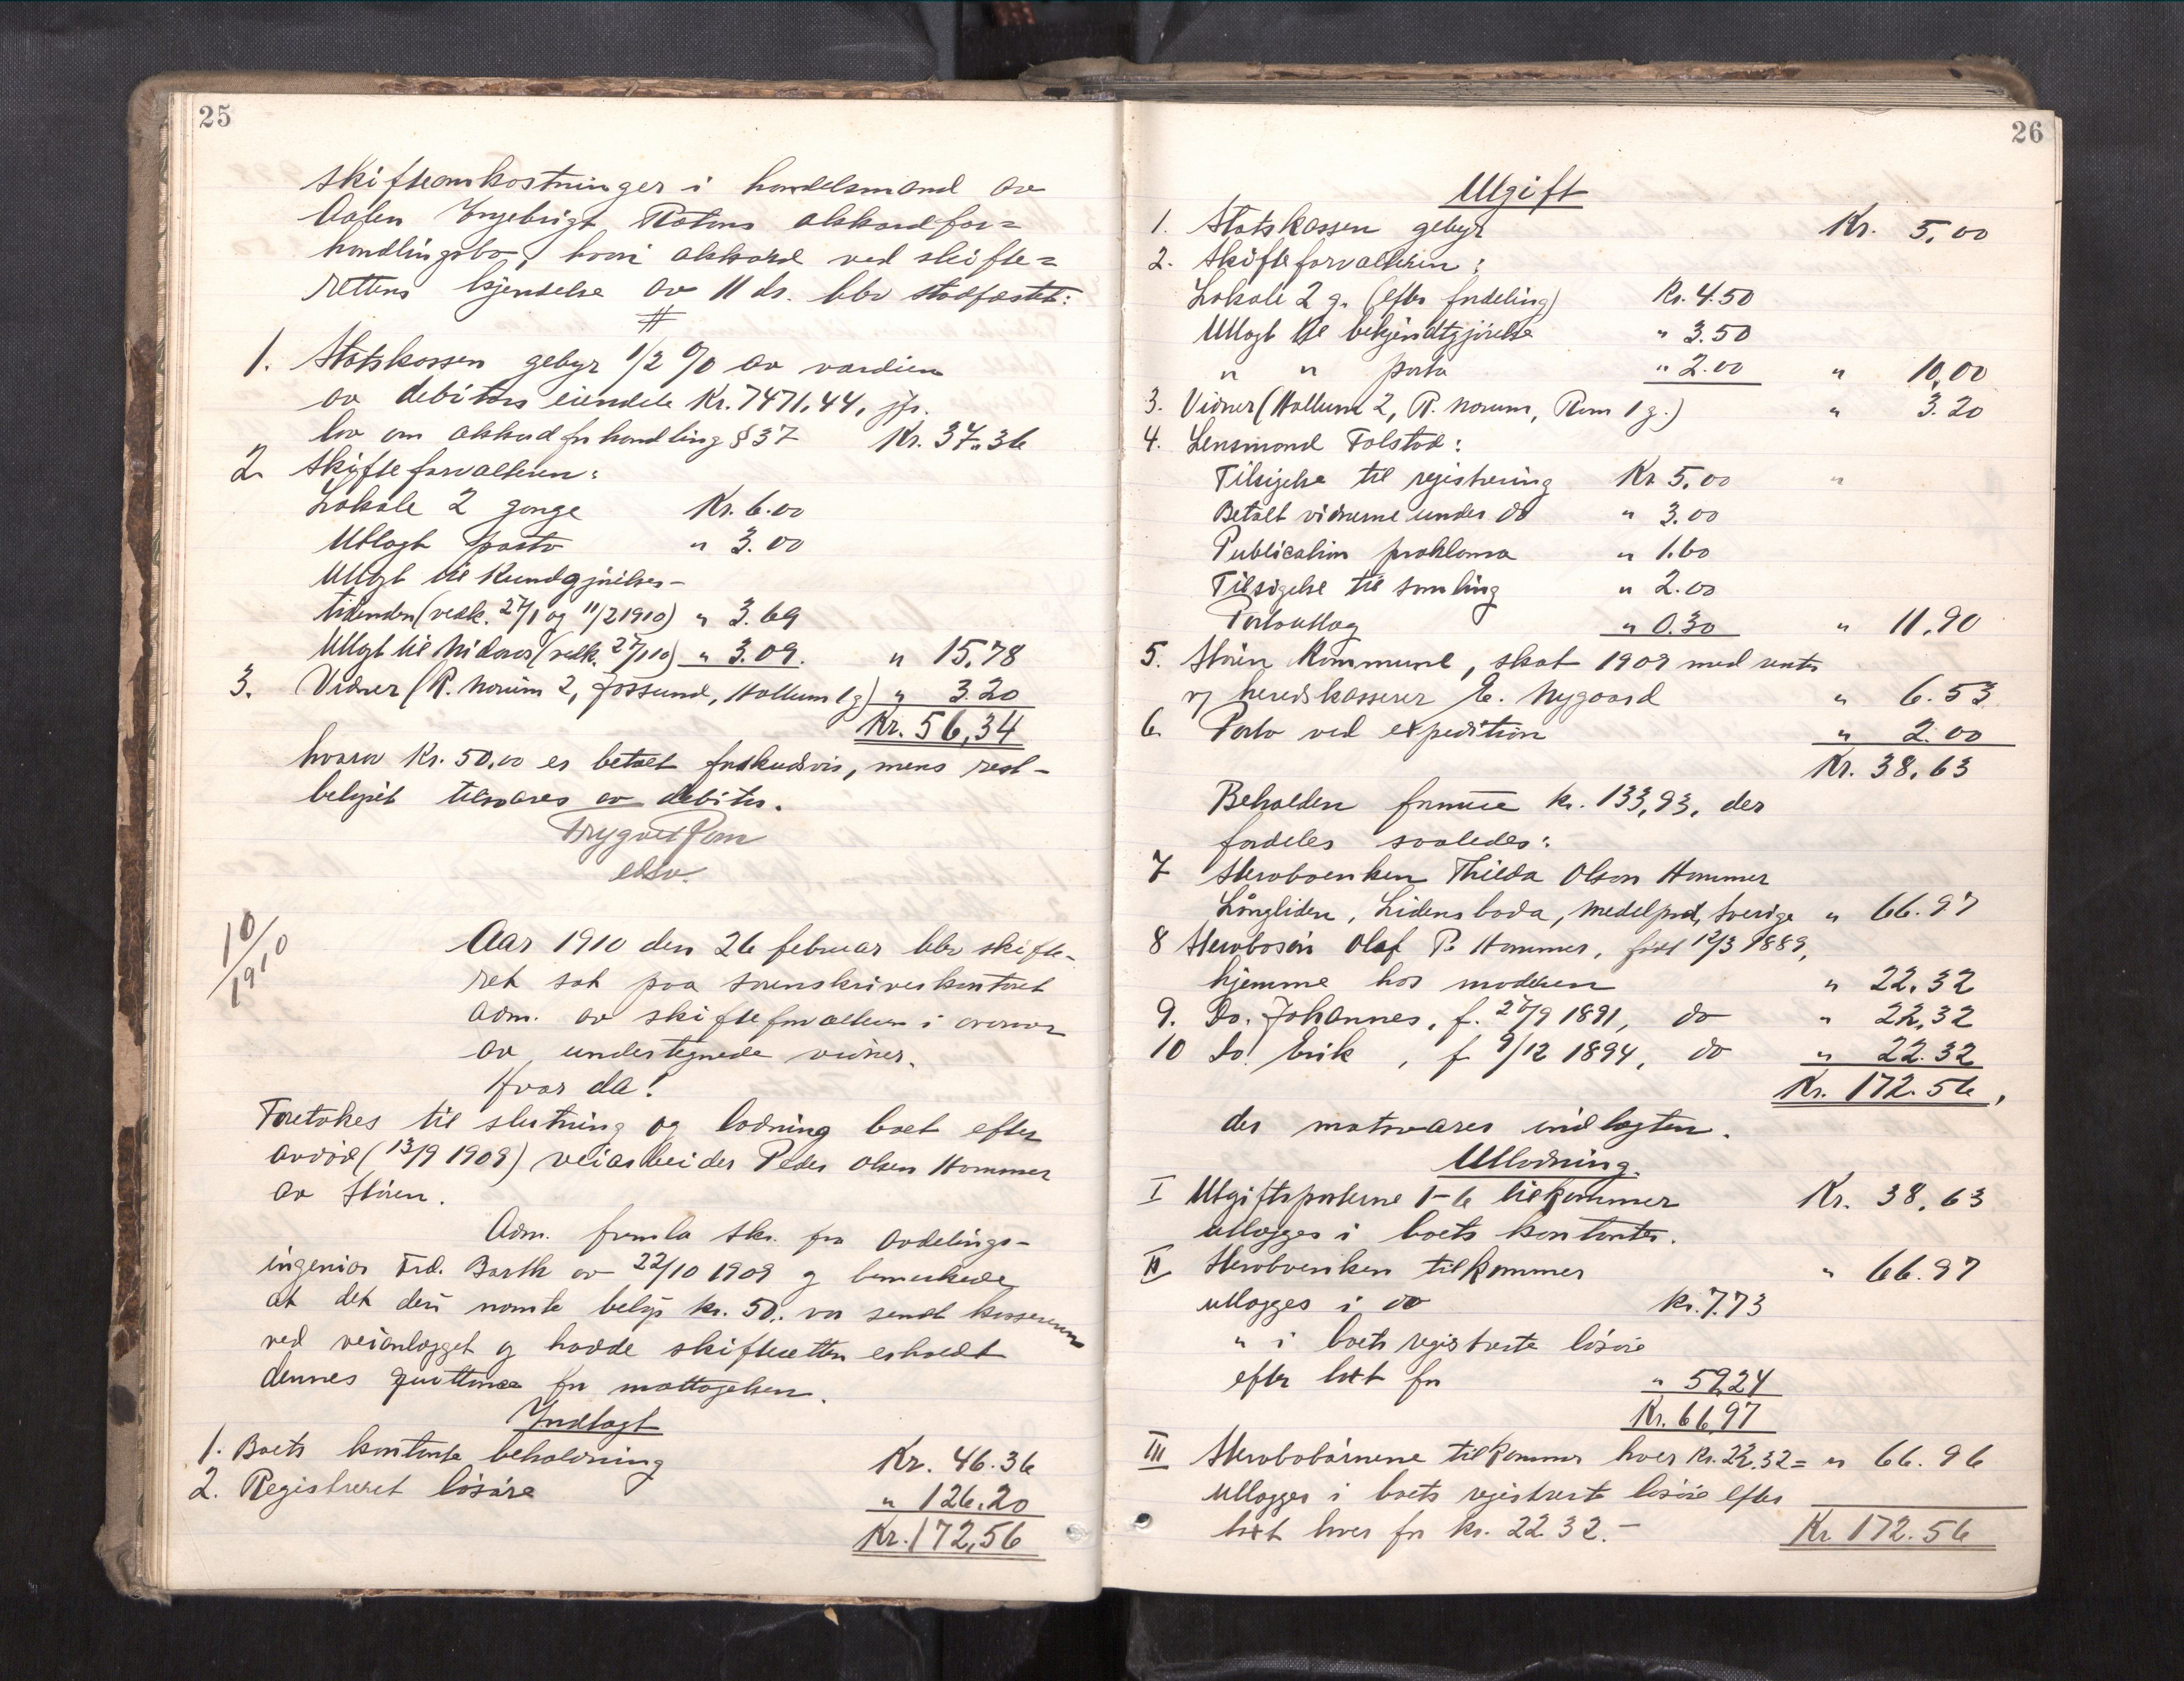 25
Skifteomkostninger i handelsmand av
Aalen Ingebrigt Rotens akkordfor=
handlingsbo, hvori akkord ved skifte=
rettens kjendelse av 11 ds. blev stadfæstet:
1. Statskassen gebyr 1/2 % av værdien
av debitors eiendele Kr. 7471,44, jfr.
lov om akkordforhandling § 37 Kr. 37.36
2. Skifteforvalteren:
Lokale 2 gange Kr. 6.00
Utlagt porto " 3.00
Utlagt til Kundgjørelses-
tidenden (vedk. 27/1 og 11/2 1910) " 3.69
Utlagt til Nidaros (vedk. 27/1 10) " 3.09. " 15,78
3. Vidner (P. Norum 2, Jossund, Hollum 1 g) " 3.20
Kr. 56,34
hvorav Kr. 50,00 er betalt forskudsvis, mens rest-
beløpet tilsvares av debitor.
Trygve Rom
edsv.
10/1910
Aar 1910 den 26 februar blev skifte-
ret sat paa sorenskriverkontoret
adm. av skifteforvalteren i overvær
av undertegnede vidner.
Hvor da!
Foretokes til slutning og lodning boet efter
avdød (13/9 1909) veiarbeider Peder Olsen Hammer
av Støren.
Adm. fremla skr. fra avdelings-
ingeniør Frd. Barth av 22/10 1909 og bemerkede
at det deri nævnte beløp kr. 50,. var sendt kassereren
ved veianlægget og havde skifteretten erholdt
dennes quittance for mottagelsen.
Indtægt
1. Boets kontante beholdning Kr. 46.36
2. Registreret løsøre " 126.20
Kr. 172,56
26
Utgift
1. Statskassen gebyr Kr. 5,00
2. Skifteforvalteren:
Lokale 2 g. (efter fordeling) Kr. 4.50
Utlagt til bekjendtgjørelse " 3.50
" " porto " 2.00 " 10,00
3. Vidner (Hollum 2, P. Norum, Rom 1 g.) " 3.20
4. Lensmand Folstad:
Tilsigelse til registrering Kr. 5,00 "
Betalt vidnerne under do " 3.00
Publication proklama " 1.60
Tilsigelse til samling " 2.00
Portoutlag " 0.30 " 11,90
5. Støren Kommune, skat 1909 med renter
v/ heredskasserer E. Nygaard " 6.53
6. Porto ved expedition " 2.00
Kr. 38,63
Beholden formue kr. 133,93, der
fordeles saaledes:
7 Stervboenken Thilda Olson Hammer
Långliden, Lidens boda, Medelpad, Sverige " 66.97
8 Stervbosøn Olaf P. Hammer, født 12/3 1889,
hjemme hos moderen " 22,32
9. Do. Johannes, f. 27/9 1891, do " 22,32
10 Do. Erik, f 9/12 1894, do " 22.32
Kr. 172.56,
der motsvarer indtægten.
Utlodning.
I Utgiftsposterne 1-6 tilkommer Kr. 38,63
utlægges i boets kontanter.
II Stervboenken tilkommer " 66.97
utlægges i do kr. 7.73
" i boets registrerte løsøre
efter lost for " 59,24
Kr. 66,97
III Stervbobørnene tilkommer hver kr. 22.32 = " 66.96
utlægges i boets registrerte løsøre efter
lost hver for kr. 22 32.- Kr 172.56